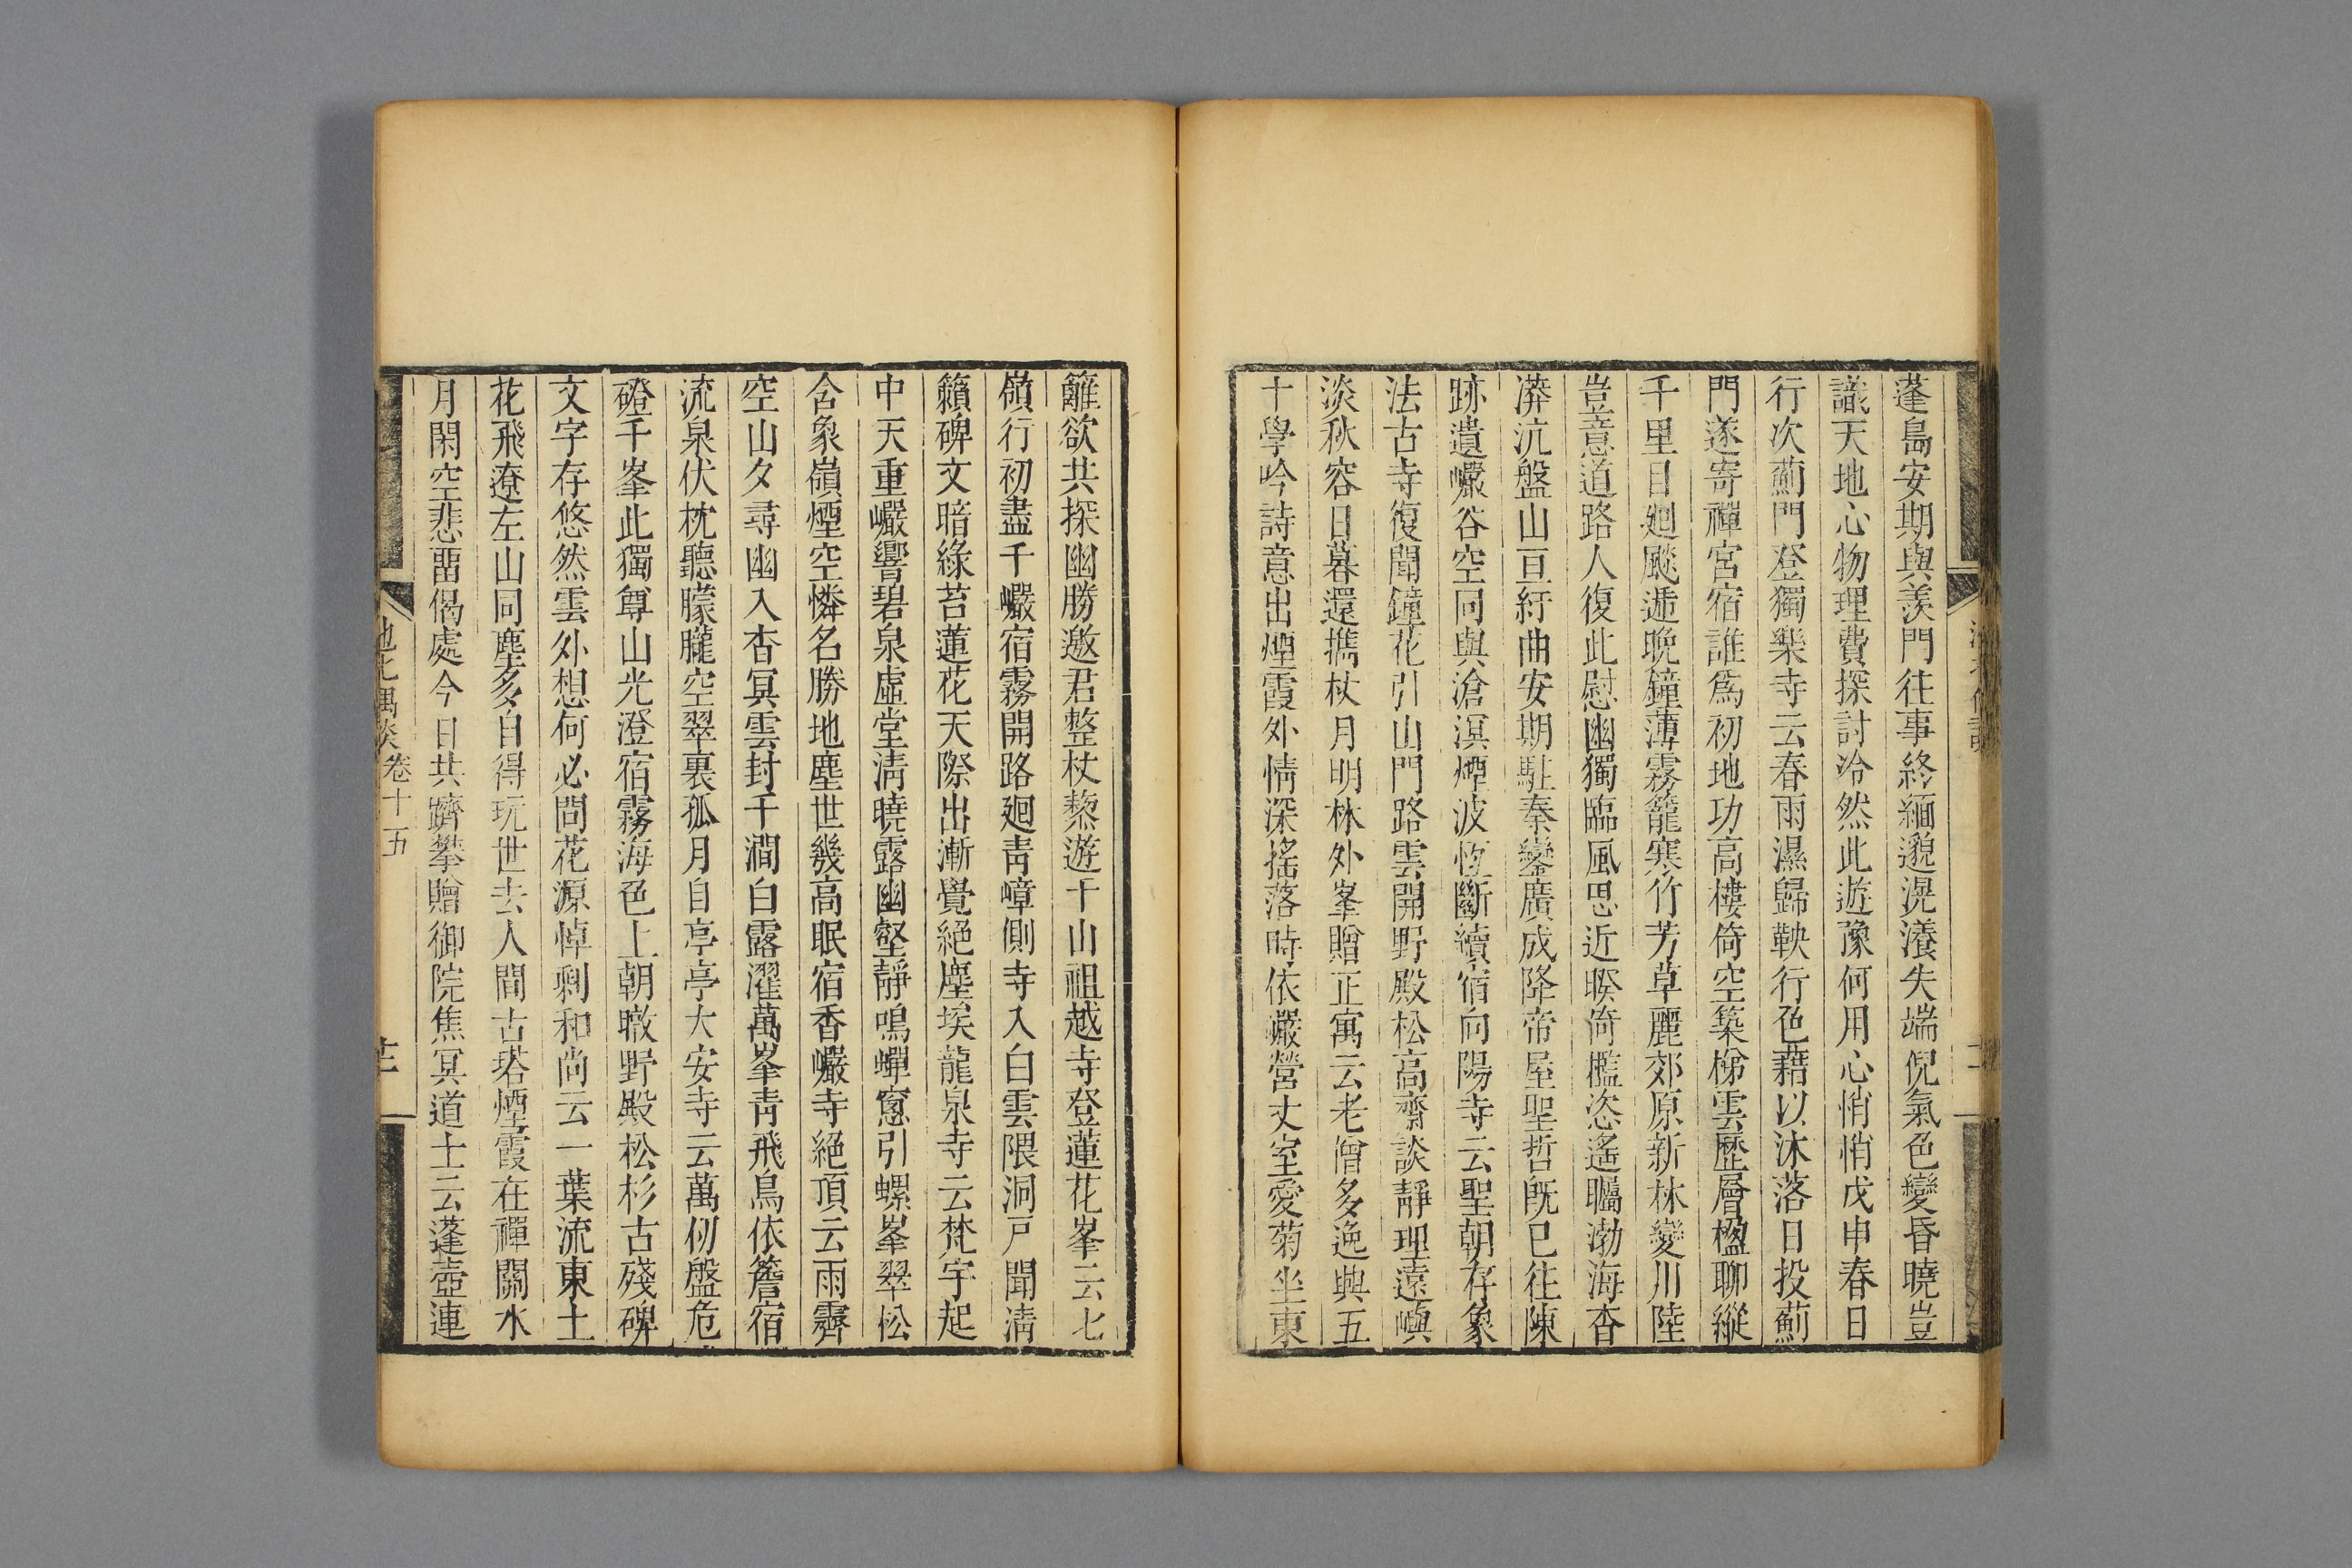 蓬島安期與羨門往事終緬邈滉瀁失端倪氣色變昏曉豈
識天地心物理費探討泠然此遊豫何用心悄悄戊申春日
行次薊門登獨樂寺云春雨濕歸鞅行色藉以沐落日投薊
門遂寄禪宮宿誰爲初地功高樓倚空築梯雲歷層楹聊縱
千里目廻颷遞晚鐘薄霧籠寒竹芳草麗郊原新林變川陸
豈意道路人復此慰幽獨臨風思近睽倚檻恣遙矚渤海杳
漭沆盤山亘紆曲安期駐秦鑾廣成降帝屋聖哲旣已往陳
跡遺巖谷空同與滄溟煙波恆斷續宿向陽寺云聖朝存象
法古寺復聞鐘花引山門路雲開野殿松高齋談靜理遠嶼
淡秋容日暮還携杖月明林外峯贈正寓云老僧多逸興五
十學吟詩意出煙霞外情深搖落時依巖營丈室愛菊坐東
籬欲共探幽勝邀君整杖藜遊千山祖越寺登蓮花峯云七
嶺行初盡千巖宿霧開路廻靑嶂側寺入白雲隈洞戸聞淸
籟碑文暗綠苔蓮花天際出漸覺絕塵埃龍泉寺云梵宇起
中天重巖響碧泉虛堂淸曉露幽壑靜鳴蟬窻引螺峯翠松
含象嶺煙空憐名勝地塵世幾高眠宿香巖寺絕頂云雨霽
空山夕尋幽入杳冥雲封千澗白露濯萬峯靑飛鳥依簷宿
流泉伏枕聽朦朧空翠裏孤月自亭亭大安寺云萬仞盤危
磴千峯此獨尊山光澄宿霧海色上朝暾野殿松杉古殘碑
文字存悠然雲外想何必問花源悼剩和尚云一葉流東土
花飛遼左山同塵多自得玩世去人間古塔煙霞在禪關水
月閑空悲畱偈處今日共躋攀贈御院焦冥道士云蓬壺連
池北偶談 卷十五